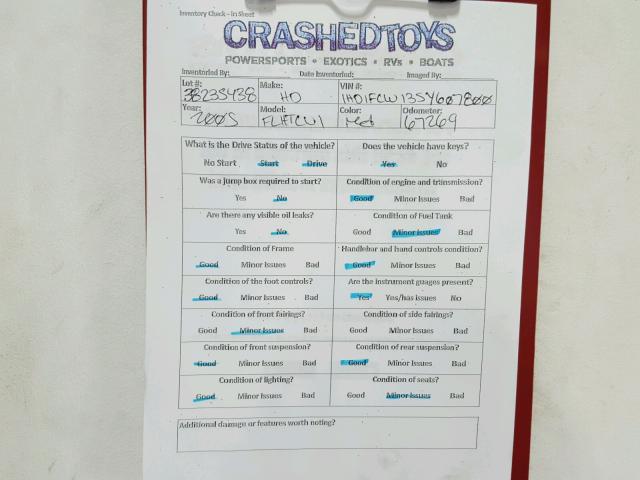 Inventory Check - In Sheet
CRASHEDTOYS
POWERSPORTS • EXOTICS • RVs • BOATS
Inventoried By: Date Inventoried: Imaged By:
Lot #: 38235438 Make: HD VIN #: 1HD1FCW135Y607800
Year: 2005 Model: FLHTCUI Color: red Odometer: 67269
What is the Drive Status of the vehicle? Does the vehicle have keys?
No Start Start Drive Yes No
Was a jump box required to start? Condition of engine and trtnsmission?
Yes No Good Minor Issues Bad
Are there any visible oil leaks? Condition of Fuel Tank
Yes No Good Minor Issues Bad
Condition of Frame Handlebar and hand controls condition?
Good Minor Issues Bad Good Minor Issues Bad
Condition of the foot controls? Are the instrument guages present?
Good Minor Issues Bad Yes Yes/has issues No
Condition of front fairings? Condition of side fairings?
Good Minor Issues Bad Good Minor Issues Bad
Condition of front suspension? Condition of rear suspension?
Good Minor Issues Bad Good Minor Issues Bad
Condition of lighting? Condition of seats?
Good Minor Issues Bad Good Minor Issues Bad
Additional damage or features worth noting?